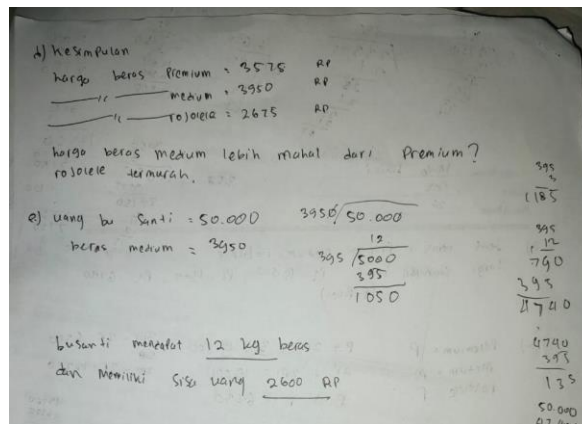 d) Kesimpulan
harga beras Premium = 3575 RP
—— " —— medium = 3950 RP
—— " —— rojolele = 2675 RP
harga beras medium lebih mahal dari Premium?
rojolele termurah.
395
3
1185
e.) uang bu Santi = 50.000
beras medium = 3950
3950/50.000
12
395/5000
395
1050
395
12
790
395
4740
busanti mendapat 12 kg beras
dan memiliki sisa uang 2600 RP
4740
395
135
50.000